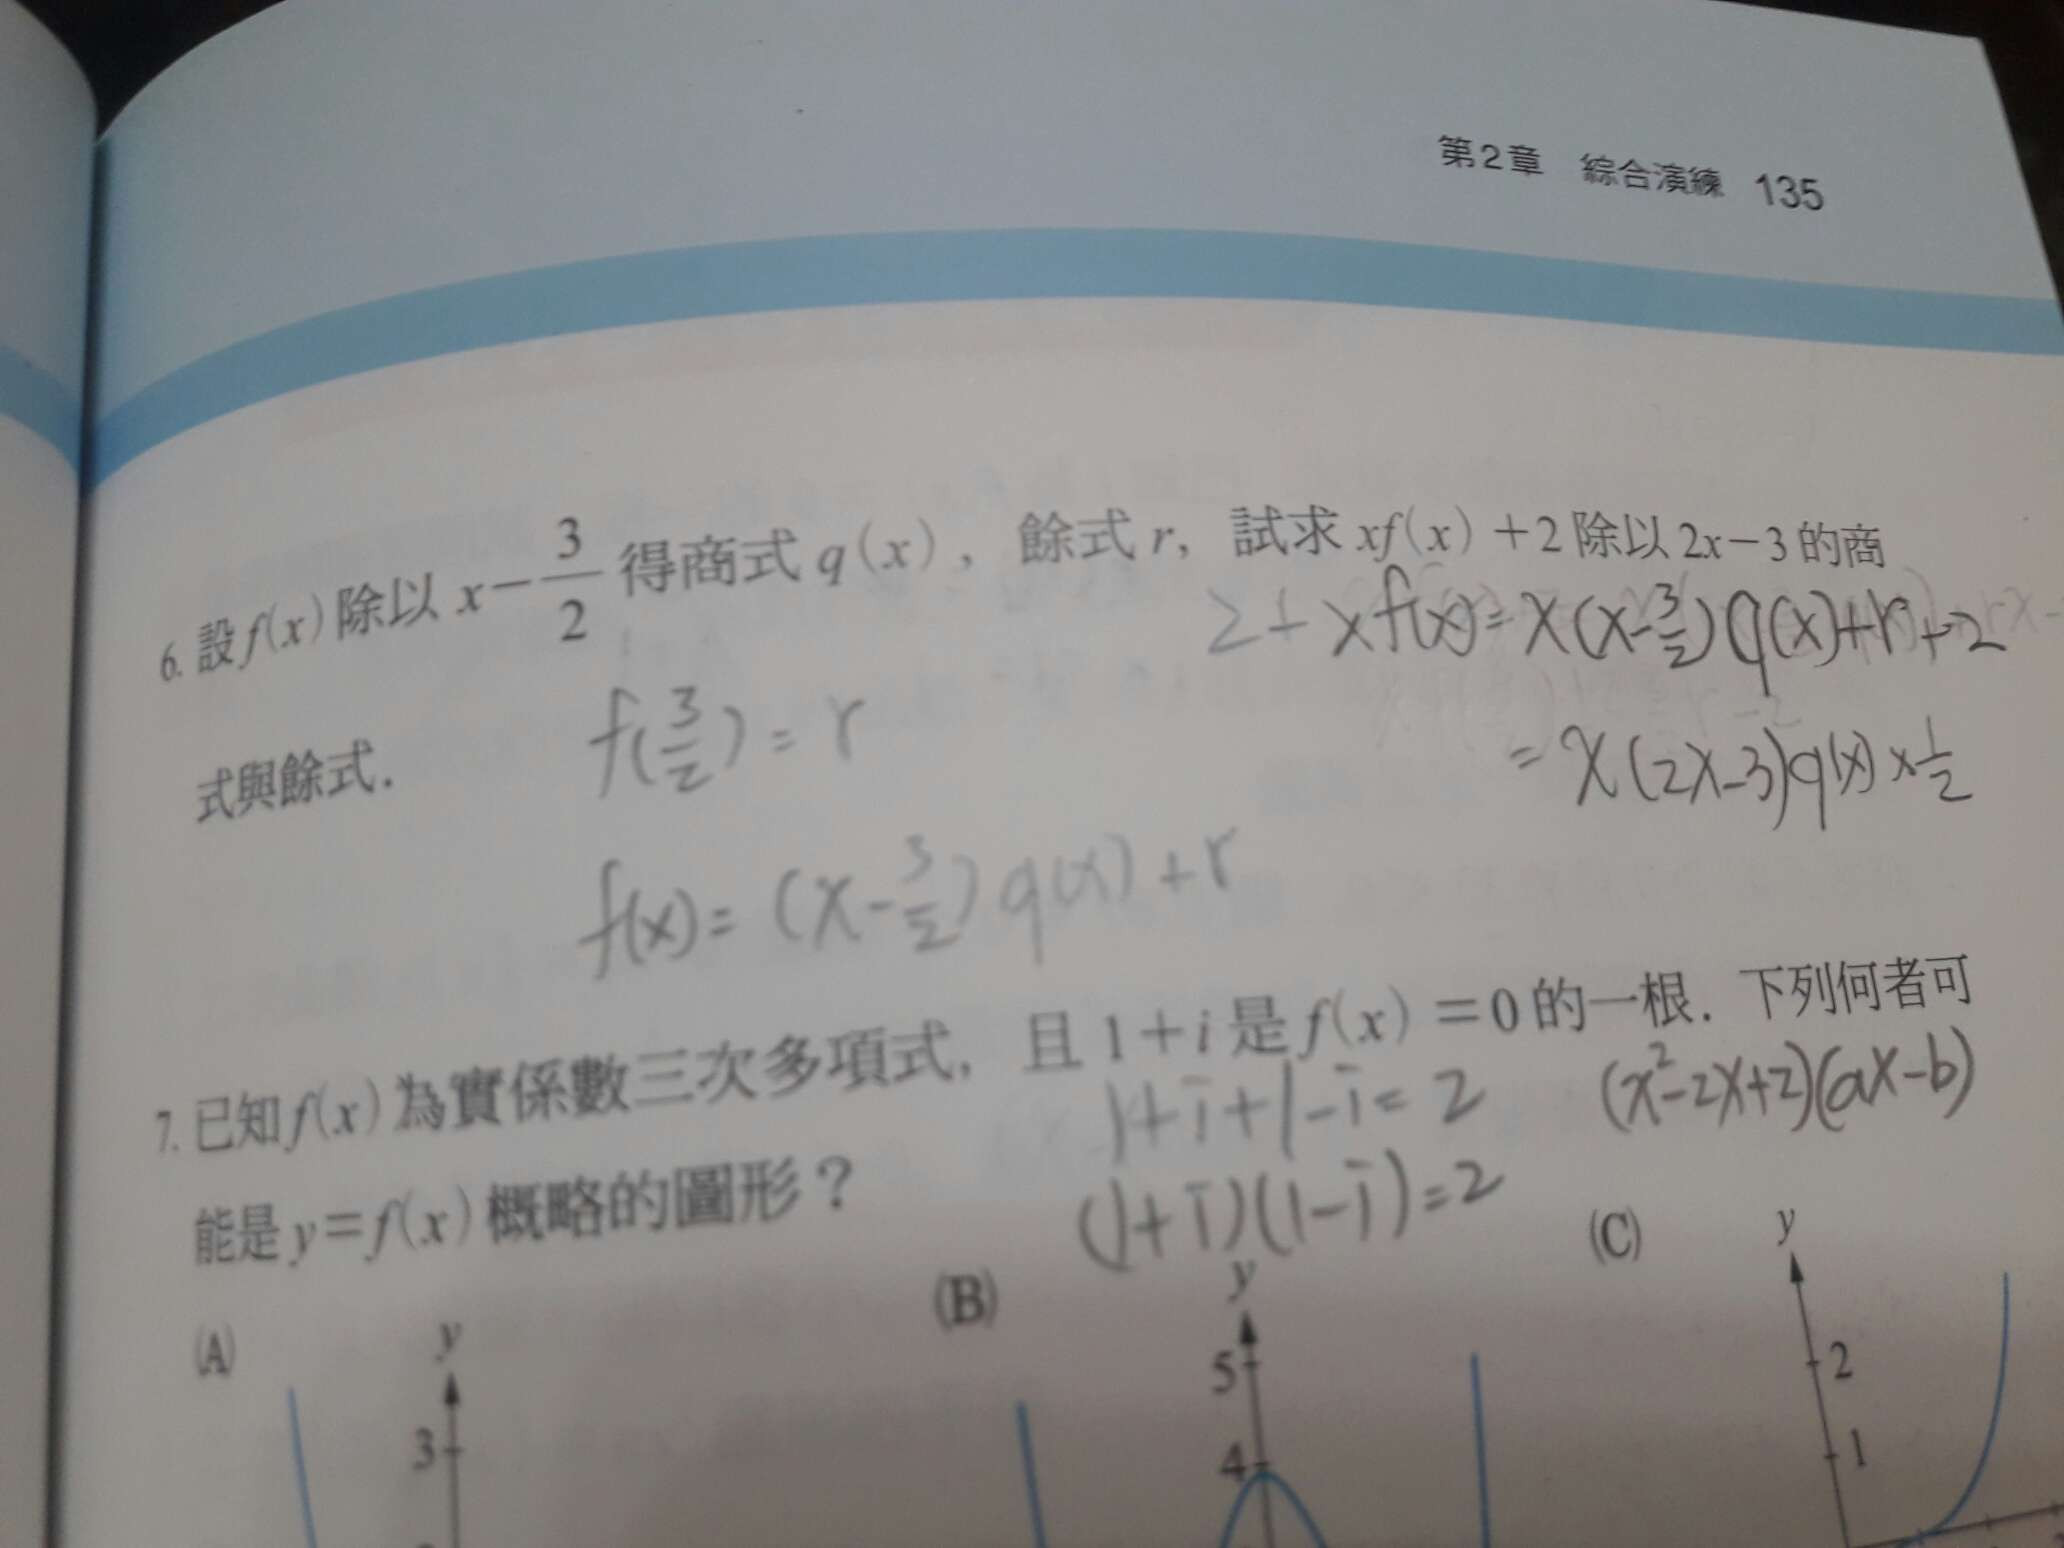 第2章 綜合演練 135
6. 設f(x)除以 x-3/2 得商式q(x), 餘式r, 試求xf(x)+2除以2x-3的商
2+xf(x)=x(x-3/2)q(x)+r+2
式與餘式.
f(3/2)=r
=x(2x-3)q(x)×1/2
f(x)=(x-3/2)q(x)+r
7. 已知f(x)為實係數三次多項式, 且1+i是f(x)=0的一根. 下列何者可
1+i+1-i=2
(x²-2x+2)(ax-b)
能是y=f(x)概略的圖形?
(1+i)(1-i)=2
(A)
(B)
(C)
y
3
y
5
4
y
2
1